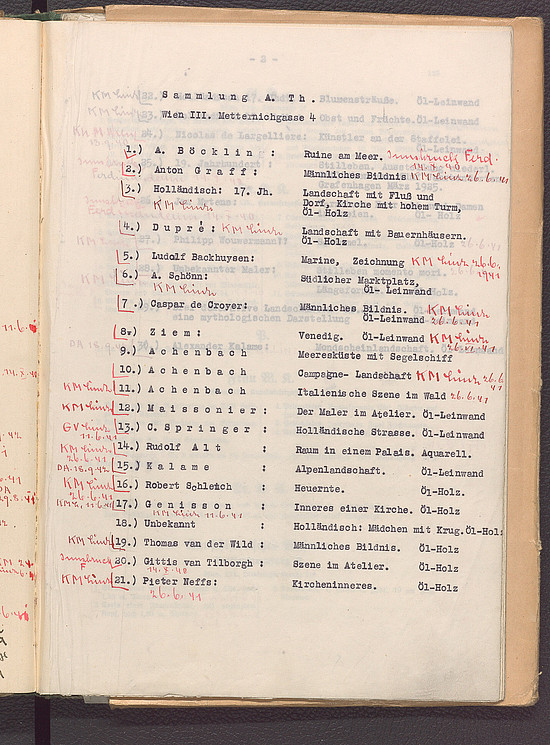 - 3 -
Sammlung A. Th.
Wien III. Metternichgasse 4
1.) A. Böcklin : Ruine am Meer. Innsbruck Ferd.
14.X.40
2.) Anton Graff : Männliches Bildnis KM Linz 26.6.41
3.) Holländisch: 17. Jh. Landschaft mit Fluß und
KM Linz Dorf, Kirche mit hohem Turm,
Öl- Holz
4.) Dupré: KM Linz Landschaft mit Bauernhäusern.
Öl- Holz
5.) Ludolf Backhuysen: Marine, Zeichnung KM Linz 26.6.
1941
6.) A. Schönn: Südlicher Marktplatz,
KM Linz Öl- Leinwand
7.) Caspar de Croyer: Männliches Bildnis. KM Linz
Öl-Leinwand 26.6.41
8.) Ziem: Venedig. Öl-Leinwand KM Linz
26.6.41
9.) Achenbach Meeresküste mit Segelschiff
10.) Achenbach Campagne- Landschaft KM Linz 26.6
41
KM Linz 11.) Achenbach Italienische Szene im Wald 26.6.41
KM Linz 12.) Maissonier: Der Maler im Atelier. Öl-Leinwand
GV Linz 13.) C. Springer : Holländische Strasse. Öl-Leinwand
11.6.41
KM Linz 14.) Rudolf Alt : Raum in einem Palais. Aquarell.
26.6.41
DA.18.9.42 15.) Kalame : Alpenlandschaft. Öl-Leinwand
KM Linz 16.) Robert Schleich : Heuernte. Öl-Holz.
26.6.41
11.6.41 17.) Genisson : Inneres einer Kirche. Öl-Holz
KM Linz 11.6.41
18.) Unbekannt Holländisch: Mädchen mit Krug.Öl-Holz
KM Linz 19.) Thomas van der Wild : Männliches Bildnis. Öl-Holz
Innsbruck F 20.) Gittis van Tilborgh : Szene im Atelier. Öl-Holz
14.X.40
KM Linz 21.) Pieter Neffs: Kircheninneres. Öl-Holz
26.6.41